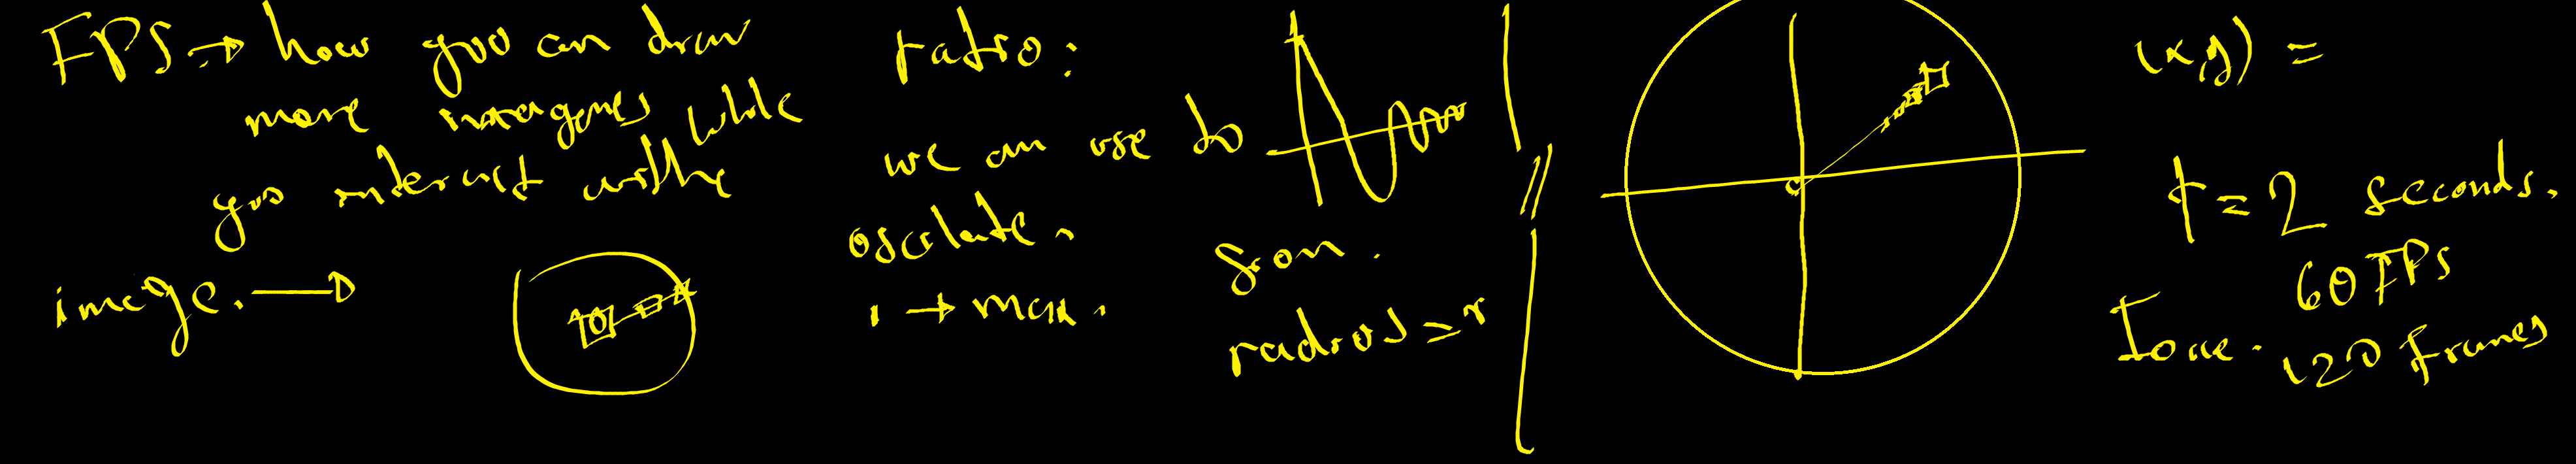 FPS → how you can draw
more images while
you interact with the
image. →
ratio:
we can use to
oscilate.
1 → max.
radius = r
(x,y) =
t = 2 seconds.
60 FPS
120 frames